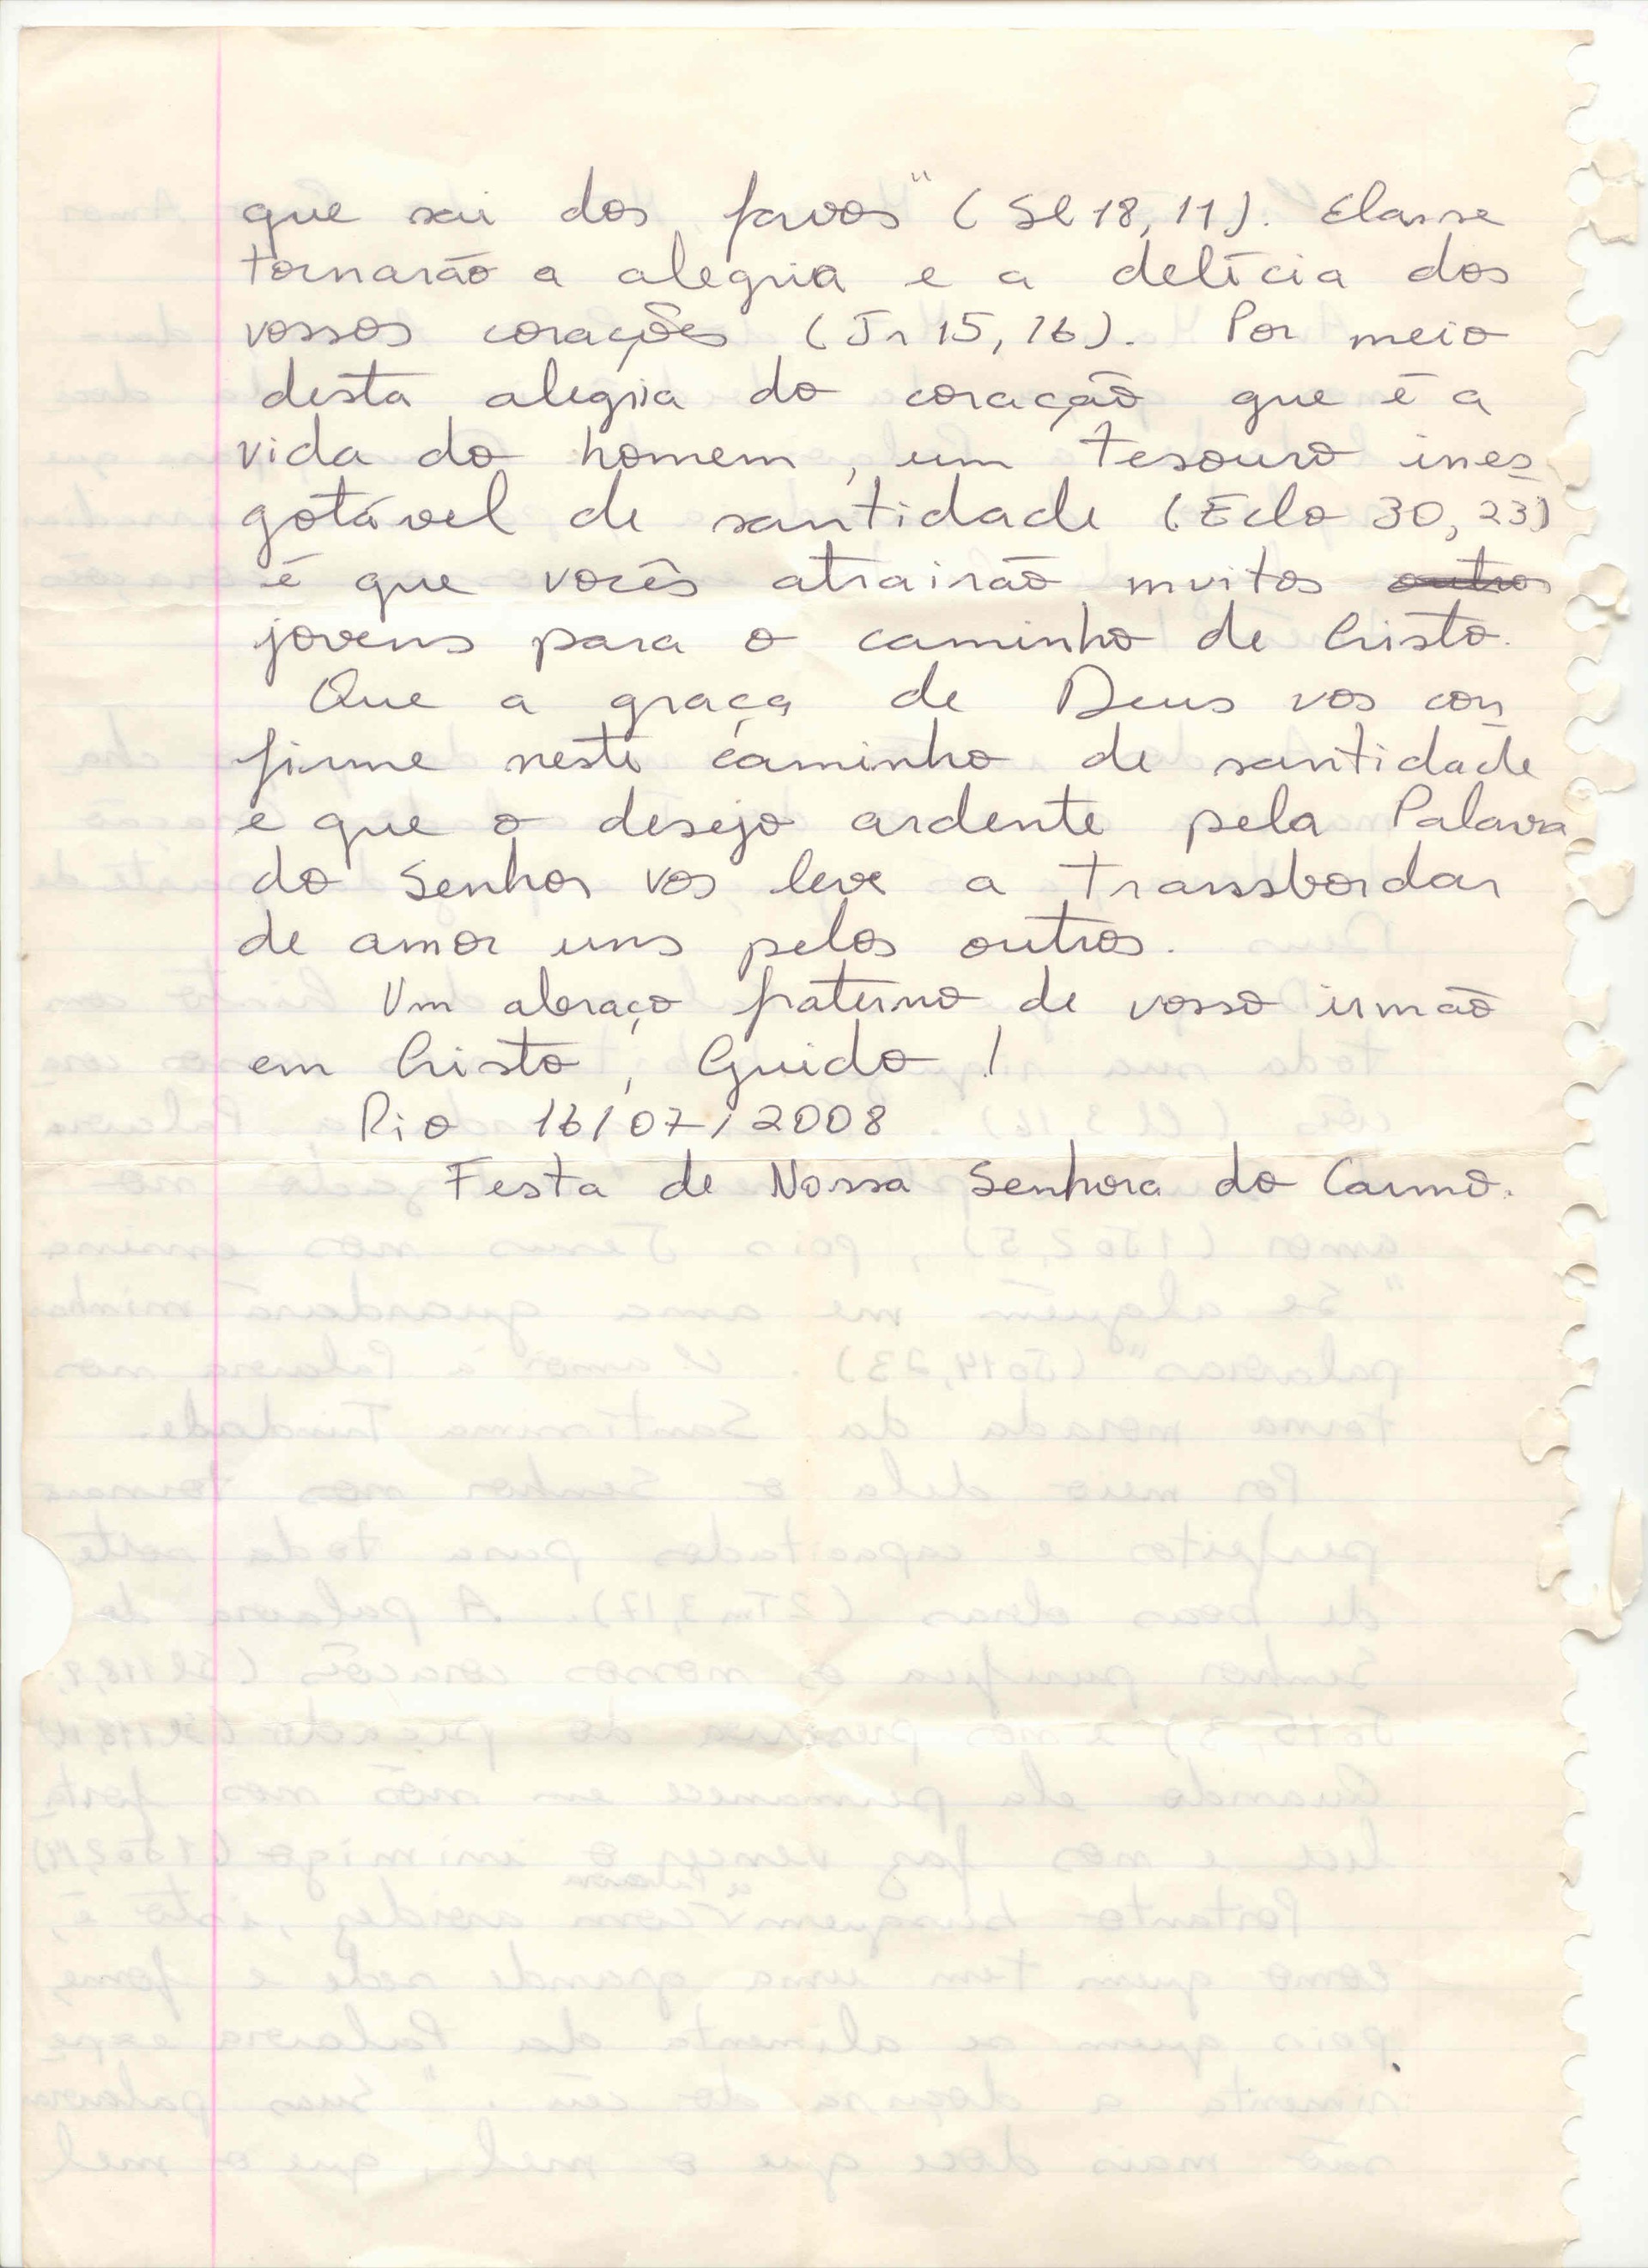 que sai dos favos" (Sl 18, 11). Elas se
tornarão a alegria e a delícia dos
vossos corações (Jr 15, 16). Por meio
desta alegria do coração que é a
vida do homem, um tesouro ines
gotável de santidade (Eclo 30, 23)
é que vocês atrairão muitos outros
jovens para o caminho de Cristo.
Que a graça de Deus vos con
firme neste caminho de santidade
e que o desejo ardente pela Palavra
do Senhor vos leve a transbordar
de amor uns pelos outros.
Um abraço fraterno de vosso irmão
em Cristo, Guido!
Rio 16/07/2008
Festa de Nossa Senhora do Carmo.